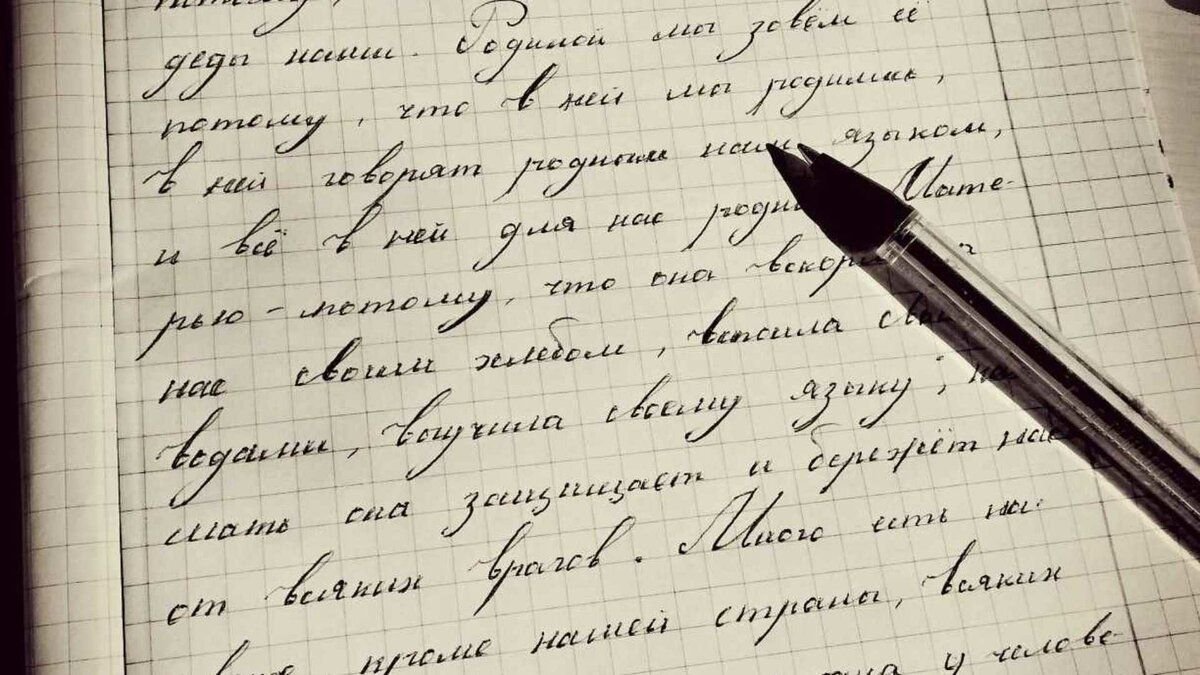 потому,
деды наши. Родиной мы зовём её
потому, что в ней мы родились,
в ней говорят родным нам языком,
и всё в ней для нас родн Мате-
рью - потому, что она вскорм
нас своим хлебом, вспоила сво
водами, выучила своему языку, ка
мать она защищает и бережёт нас
от всяких врагов. Много есть на
кроме нашей страны, всяких
у челове-